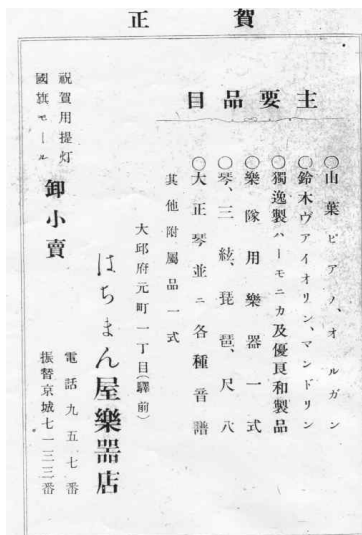 賀正
主要品目
○山葉ピアノ、オルガン
○鈴木ヴアイオリン、マンドリン
○獨逸製ハーモニカ及優良和製品
○樂隊用樂器一式
○琴、三絃、琵琶、尺八
○大正琴並ニ各種音譜
其他附屬品一式
大邱府元町一丁目(驛前)
はちまん屋樂器店
電話九五七番
振替京城七一三三番
卸小賣
祝賀用提灯
國旗モール